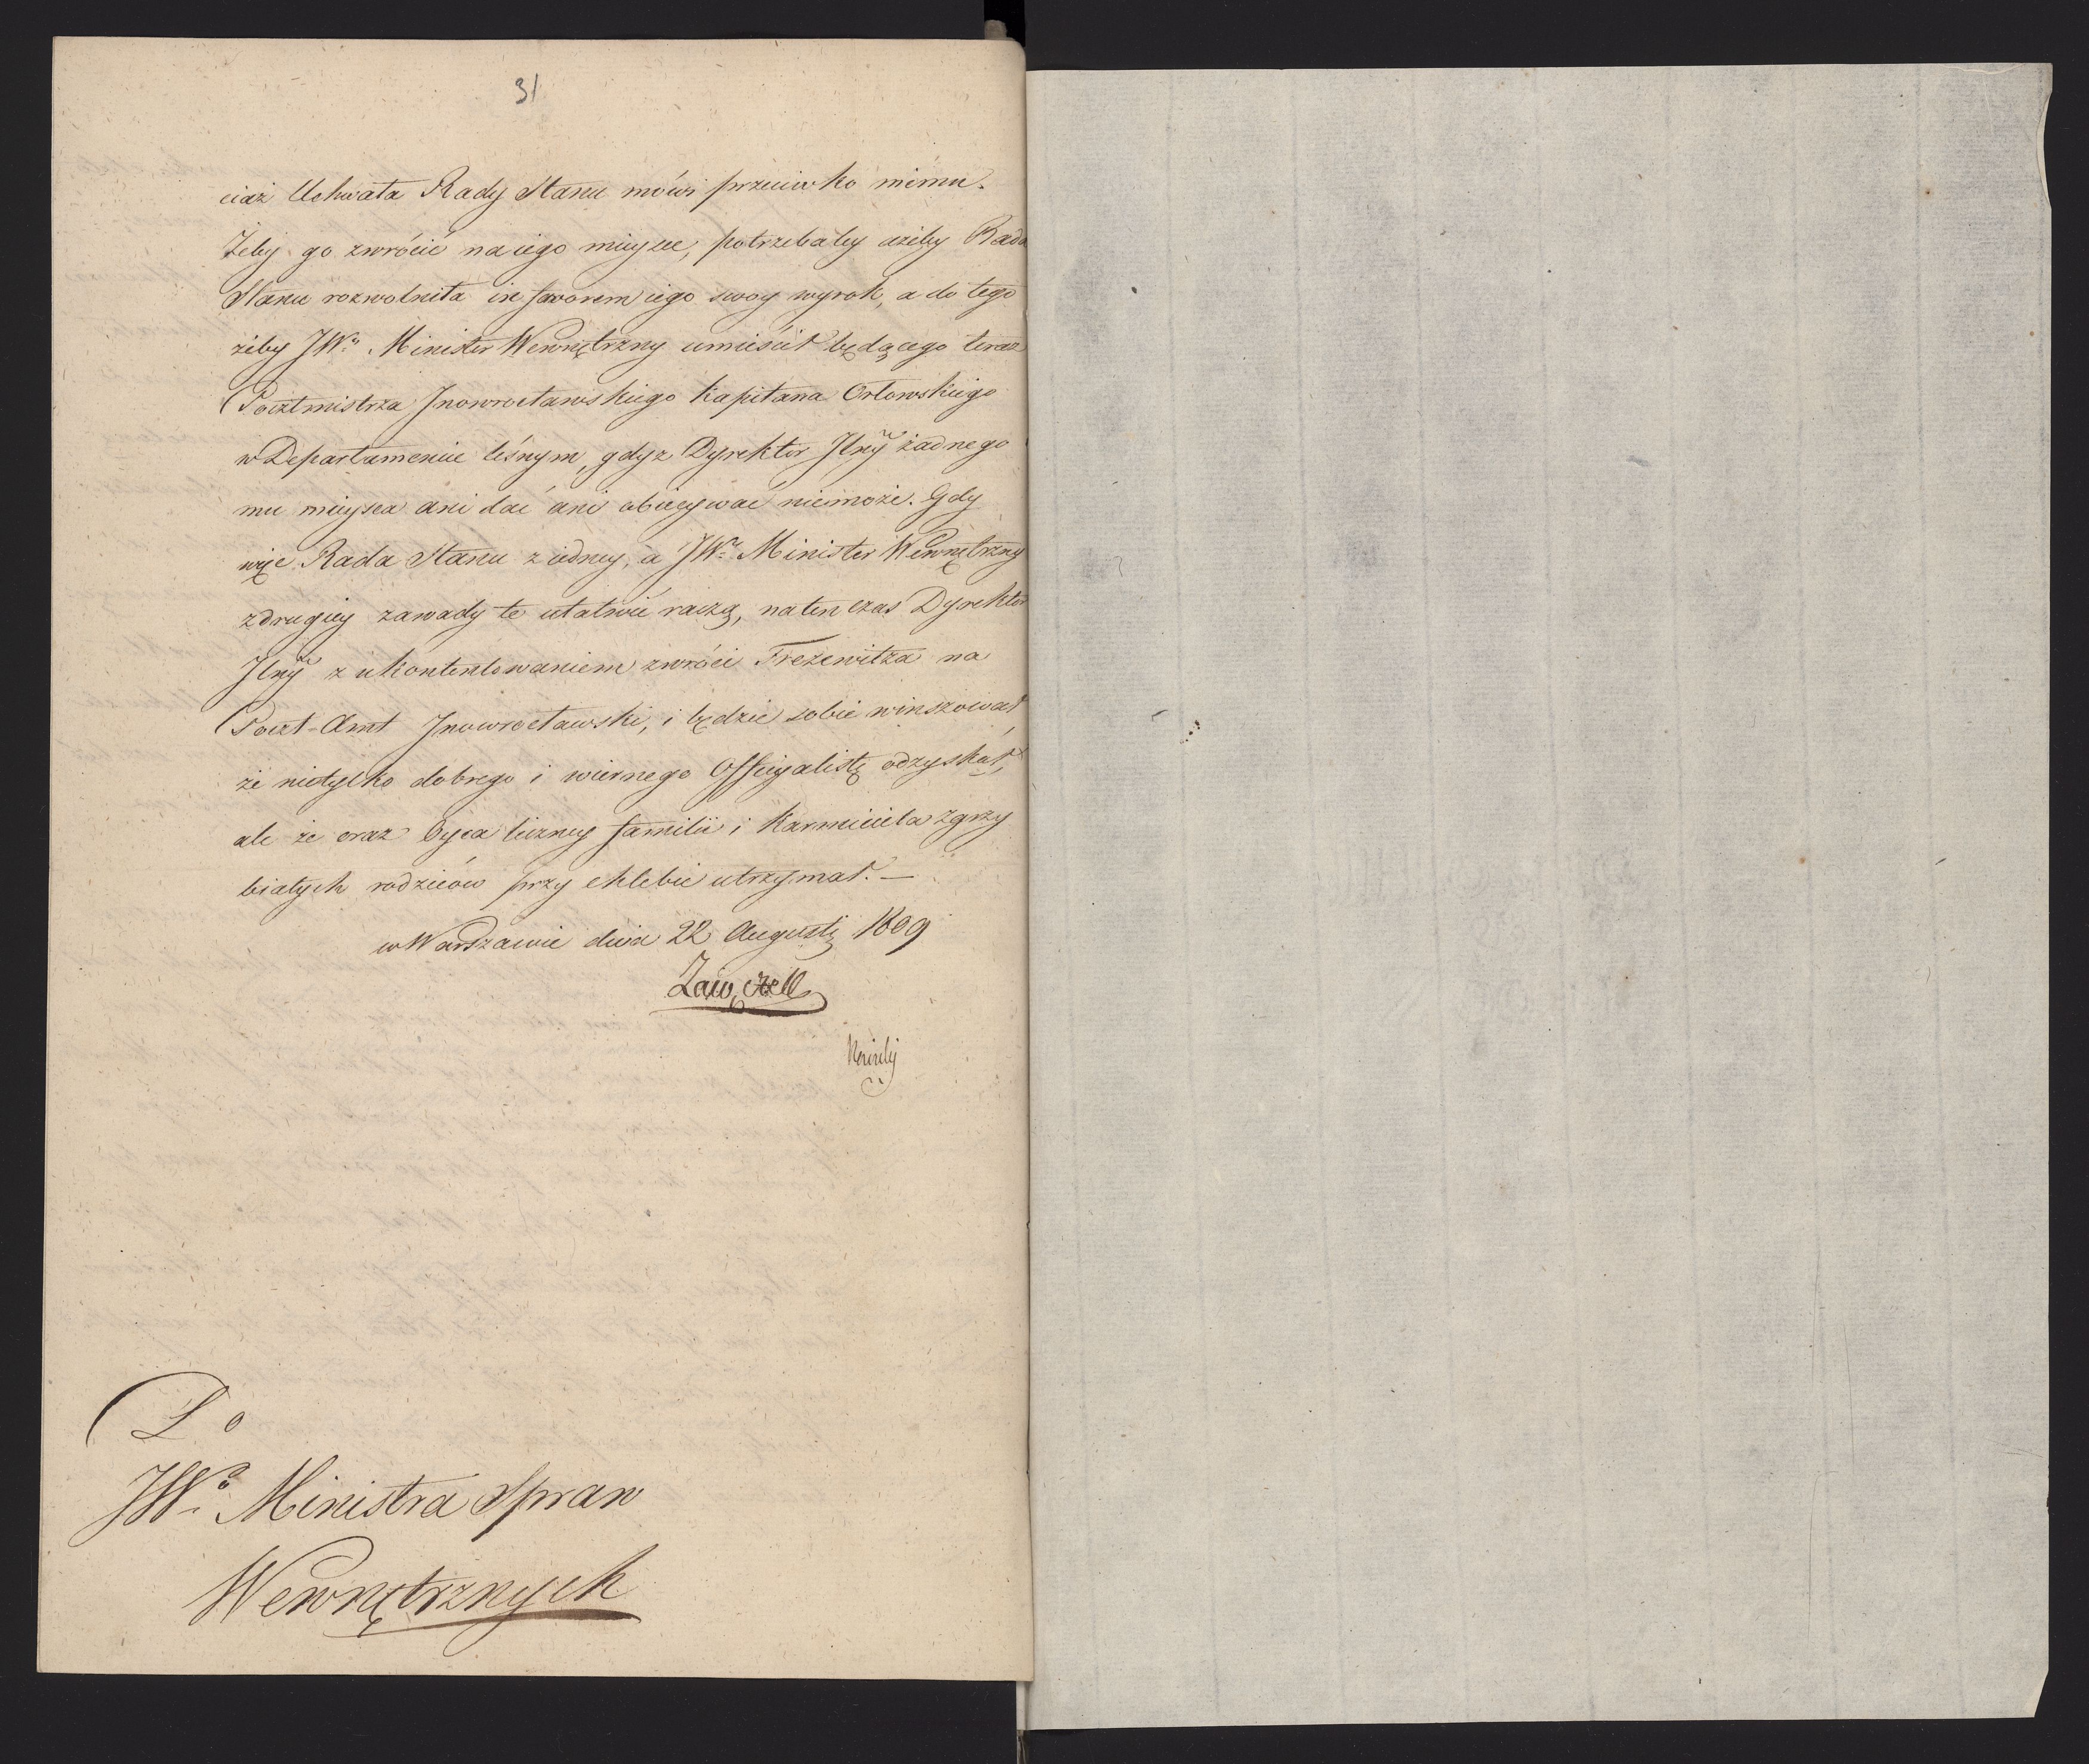 31
ciaż Uchwała Rady Stanu mówi przeciwko niému.
Żeby go zwrócić na iego mieysce, potrzebaby ażeby Rada
Stanu rozwolniła in favorem iego swoy wyrok, a do tego
żeby JW.ny Minister Wewnętrzny umieścił będącego teraz
Pocztmistrza Jnowrocławskiego Kapitana Orłowskiego
w Departamencie leśnym, gdyż Dyrektor Jlny żadnego
mu mieysca ani dać ani obiecywać niemoże. Gdy
więc Rada Stanu z iedney, a JW.ny Minister Wewnętrzny
z drugiey zawady te ułatwić raczą, natenczas Dyrektor
Jlny z ukontentowaniem zwróci Frezewitza na
Poczt-Amt Jnowrocławski, i będzie sobie winszował
że nietylko dobrego i wiernego Officyalistę odzyskał,
ale że oraz Oyca liczney familii i karmiciela zgrzy
białych rodziców przy chlebie utrzymał. —
w Warszawie dnia 22 Augusti 1809
Do
JW.o Ministra Spraw
Wewnętrznych